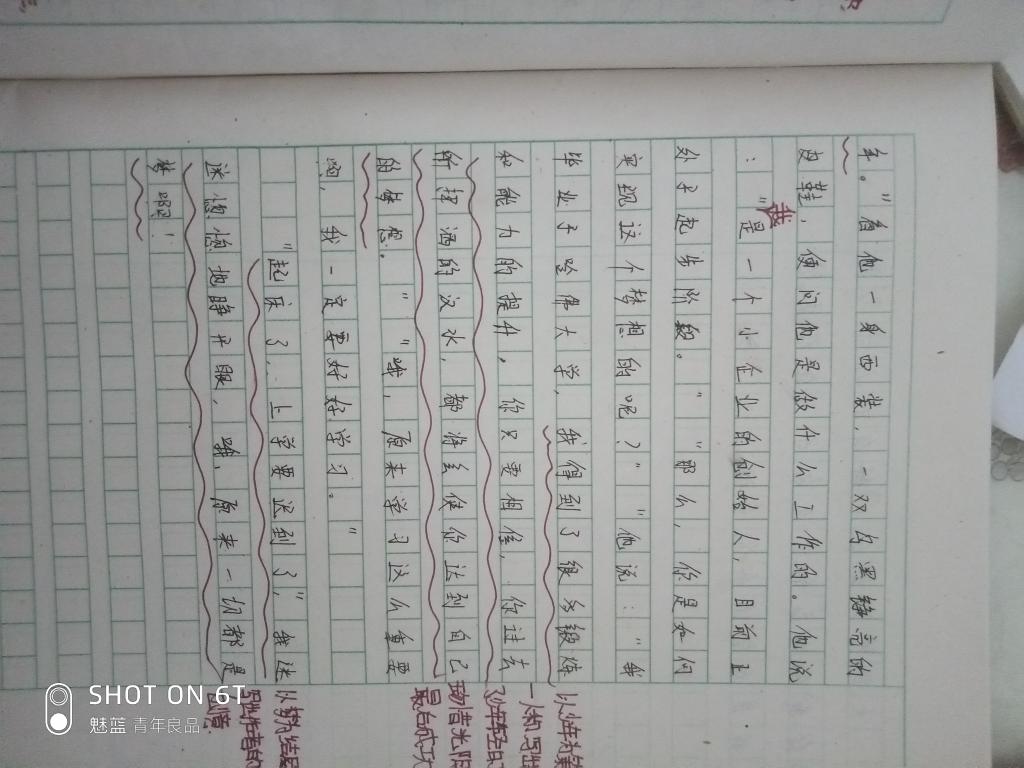 车。"看他一身西装,一双乌黑铮亮的
皮鞋,便问他是做什么工作的。他说
:"我是一个小企业的创始人,目前正
处于起步阶段。""那么,你是如何
实现这个梦想的呢?""他说:"我
毕业于哈佛大学,我得到了很多锻炼
和能力的提升,你只要相信,你过去
所挥洒的汉水,都将会使你达到自己
的梦想。""哦,原来学习这么重要
啊,我一定要好好学习。"
"起床了,上学要迟到了,"我迷
迷惚惚地睁开眼,哦,原来一切都是
梦啊!
惜光阴
最后成功
SHOT ON 6T
魅蓝 青年良品